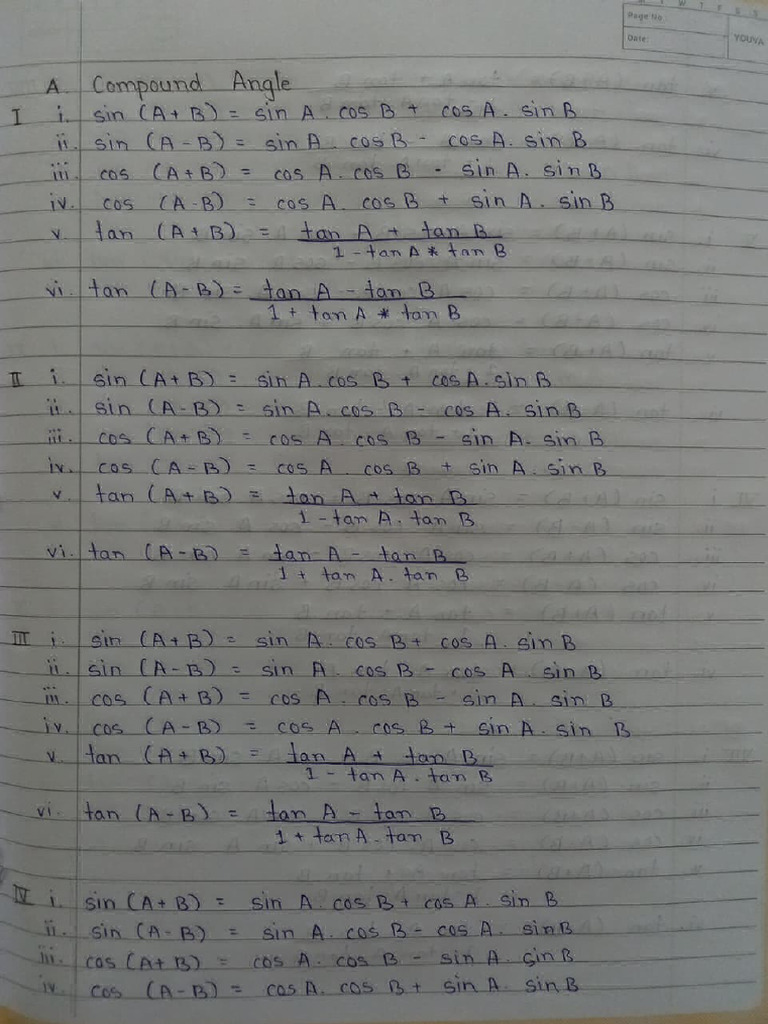 Page No
Date:
YOUVA
A Compound Angle
I i. sin (A+B) = sin A. cos B + cos A. sin B
ii. sin (A-B) = sin A. cos B - cos A. sin B
iii. cos (A+B) = cos A. cos B - sin A. sin B
iv. cos (A-B) = cos A. cos B + sin A. sin B
v. tan (A+B) = tan A + tan B
1 - tan A * tan B
vi. tan (A-B) = tan A - tan B
1 + tan A * tan B
II i. sin (A+B) = sin A. cos B + cos A. sin B
ii. sin (A-B) = sin A. cos B - cos A. sin B
iii. cos (A+B) = cos A. cos B - sin A. sin B
iv. cos (A-B) = cos A. cos B + sin A. sin B
v. tan (A+B) = tan A + tan B
1 - tan A. tan B
vi. tan (A-B) = tan A - tan B
1 + tan A. tan B
III i. sin (A+B) = sin A. cos B + cos A. sin B
ii. sin (A-B) = sin A. cos B - cos A. sin B
iii. cos (A+B) = cos A. cos B - sin A. sin B
iv. cos (A-B) = cos A. cos B + sin A. sin B
v. tan (A+B) = tan A + tan B
1 - tan A. tan B
vi. tan (A-B) = tan A - tan B
1 + tan A. tan B
IV i. sin (A+B) = sin A. cos B + cos A. sin B
ii. sin (A-B) = sin A. cos B - cos A. sin B
iii. cos (A+B) = cos A. cos B - sin A. sin B
iv. cos (A-B) = cos A. cos B + sin A. sin B